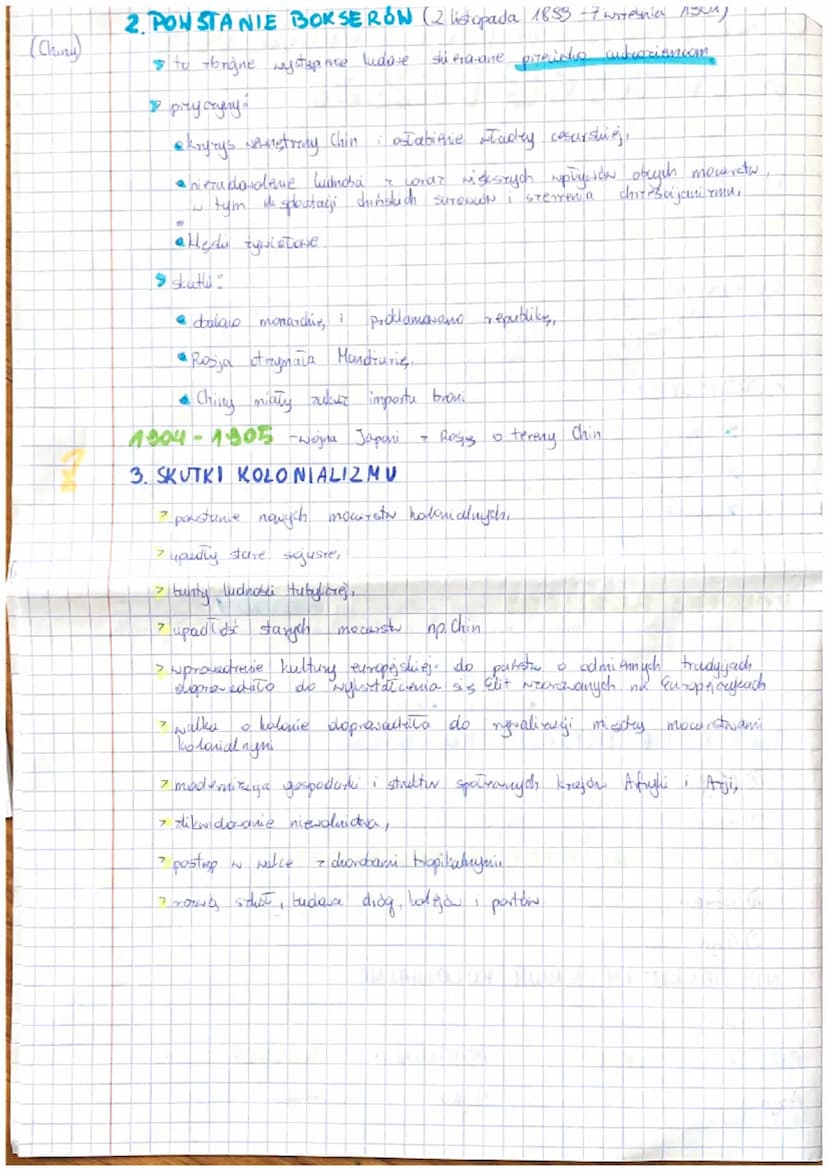 2. POWSTANIE BOKSERÓW (2 listopada 1899 - 7 września 1901)
(Chiny)
to zbrojne wystąpienie ludowe skierowane przeciwko cudzoziemcom
przyczyny:
kryzys wewnętrzny Chin i osłabienie władzy cesarskiej,
niezadowolenie ludności z coraz większych wpływów obcych mocarstw,
w tym eksploatacji chińskich surowców i szerzenia chrześcijanizmu,
klęski żywiołowe
skutki:
obalono monarchię i proklamowano republikę,
Rosja otrzymała Mandżurię,
Chiny miały zakaz importu broni
1904 - 1905 - wojna Japonii z Rosją o tereny Chin
3. SKUTKI KOLONIALIZMU
powstanie nowych mocarstw kolonialnych,
upadły stare sojusze,
bunty ludności tubylczej,
upadłość starych mocarstw np. Chin
wprowadzenie kultury europejskiej do państw o odmiennych tradycjach
doprowadziło do wykształcenia się Elit wzorowanych na Europejczykach
walka o kolonie doprowadziła do rywalizacji między mocarstwami
kolonialnymi
modernizacja gospodarki i struktur społecznych krajów Afryki i Azji,
zlikwidowanie niewolnictwa,
postęp w walce z chorobami tropikalnymi
rozwój szkół, budowa dróg, kolejów i portów